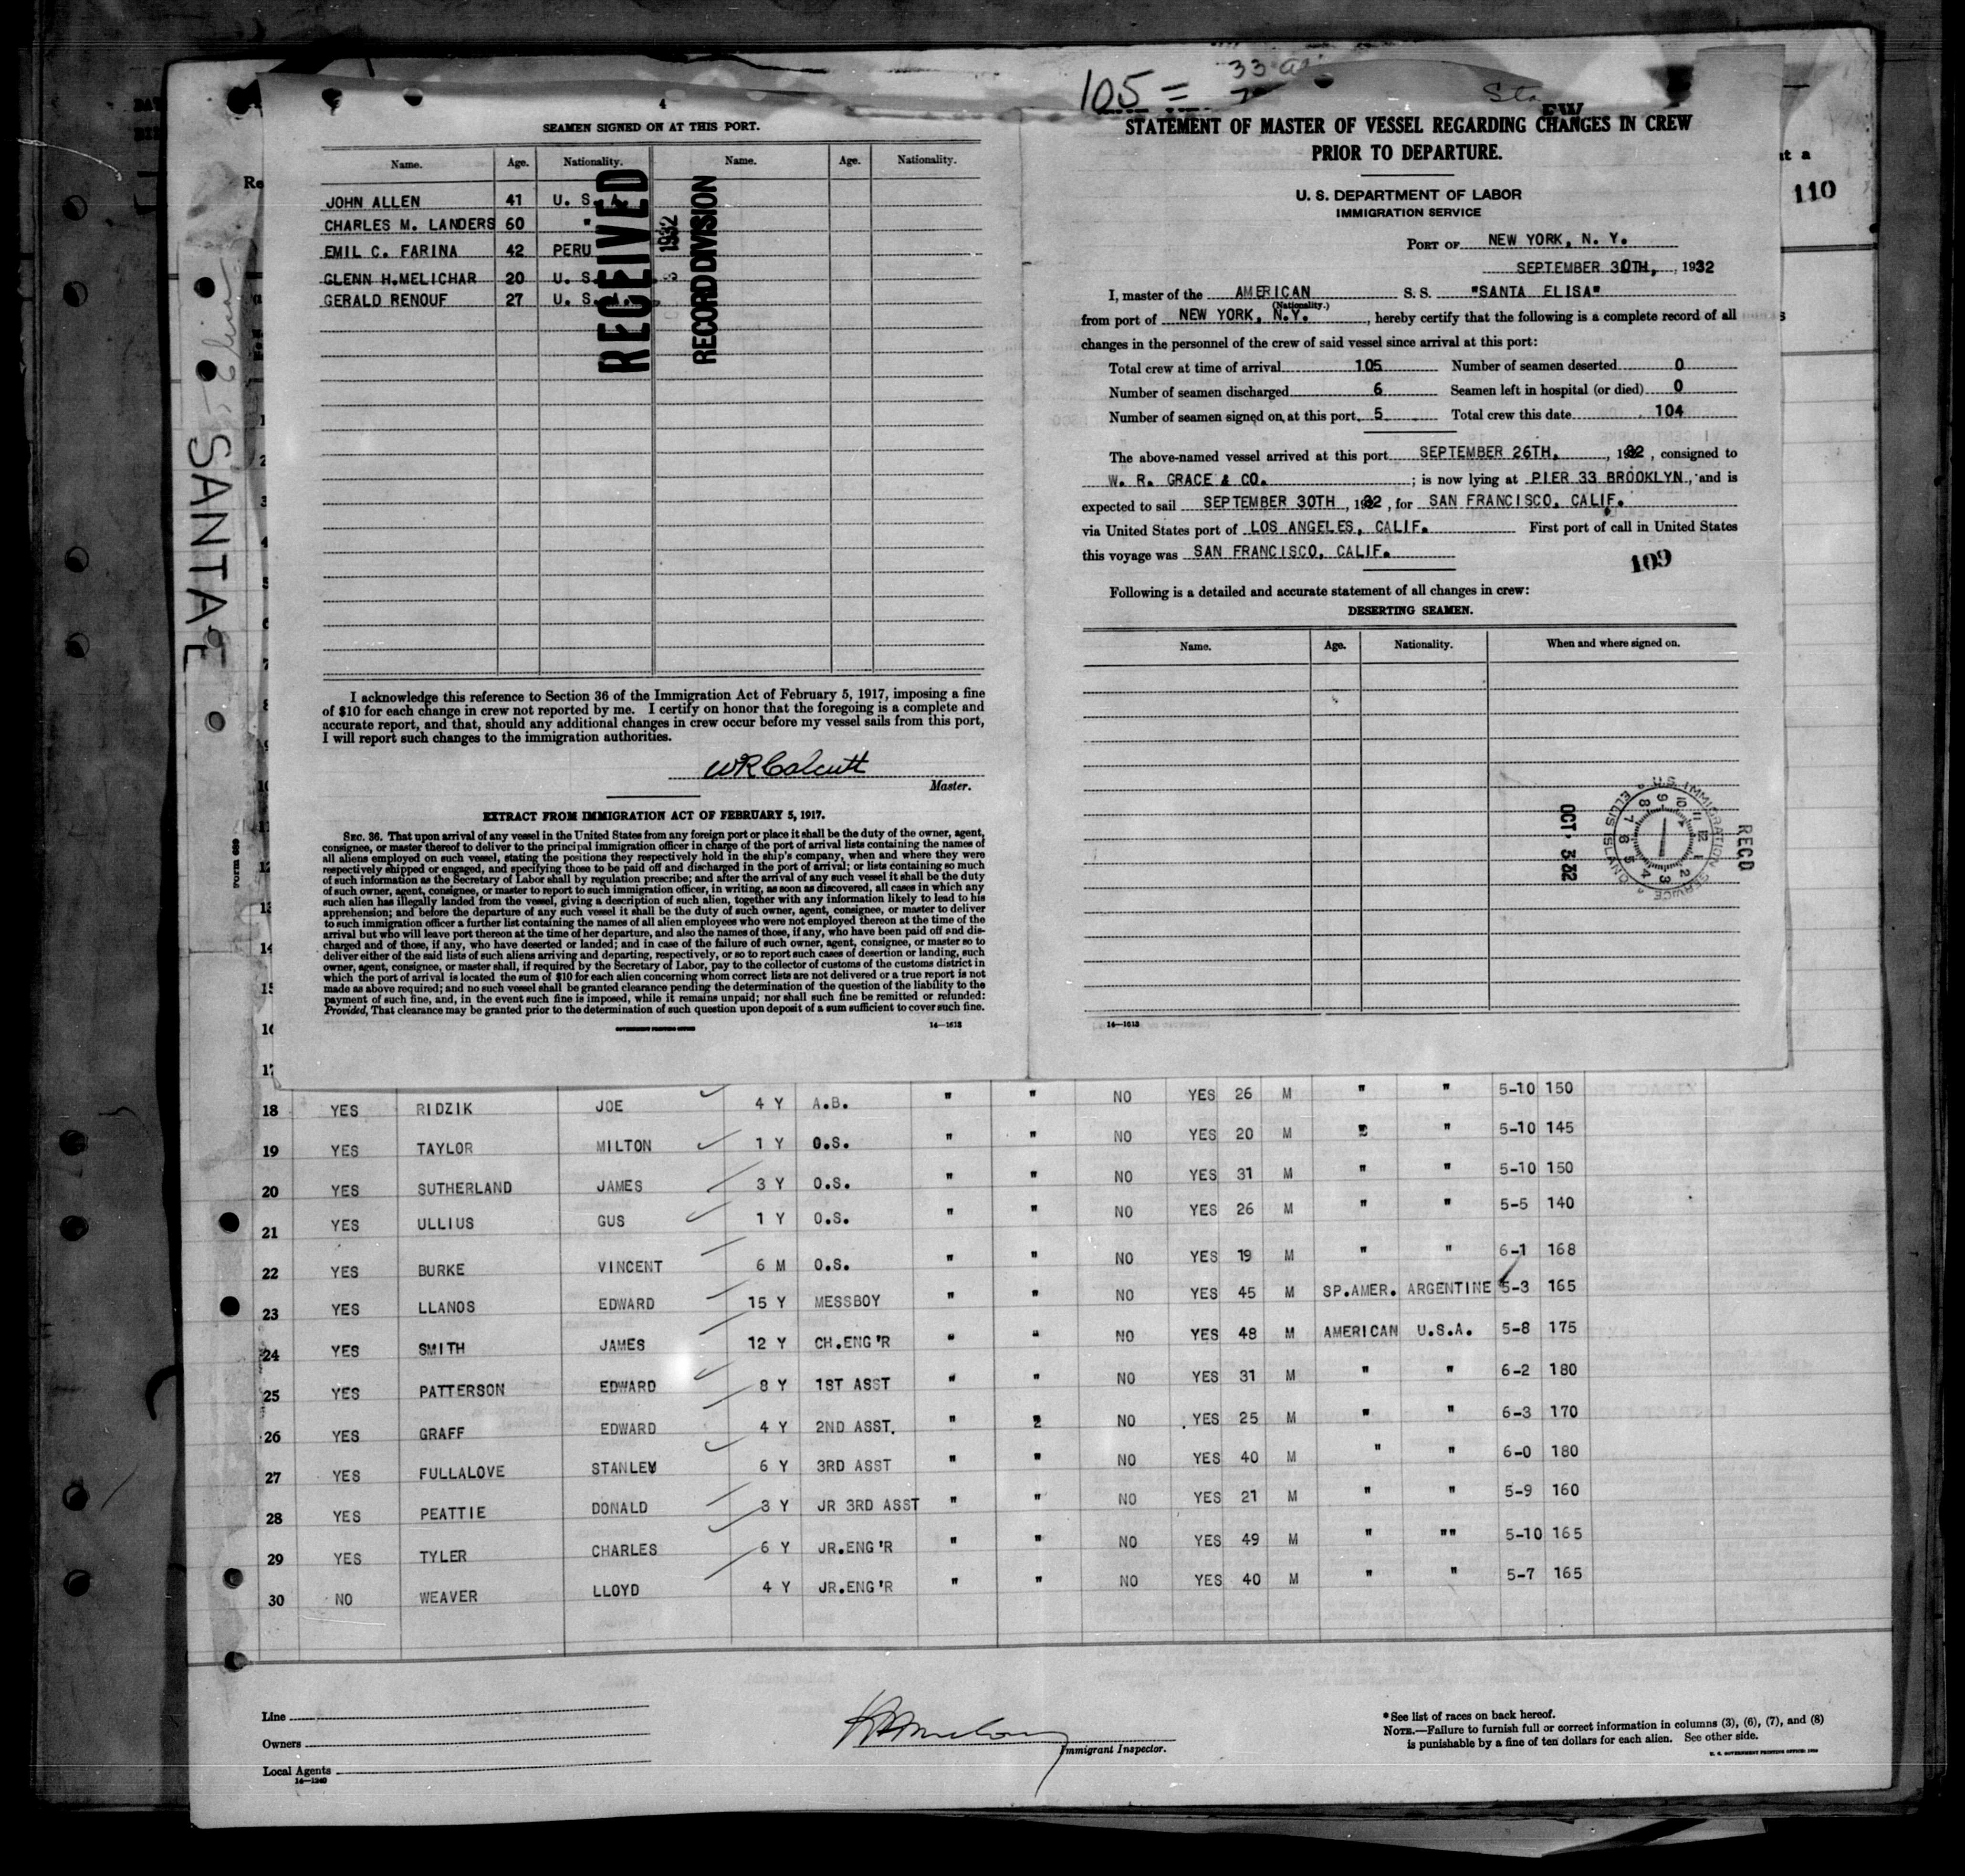 105 =
4
SEAMEN SIGNED ON AT THIS PORT.
Name. Age. Nationality. Name. Age. Nationality.
JOHN ALLEN 41 U. S. A.
CHARLES M. LANDERS 60 "
EMIL C. FARINA 42 PERU
GLENN H.MELICHAR 20 U. S.
GERALD RENOUF 27 U. S. A.
RECEIVED
1932
RECORD DIVISION
I acknowledge this reference to Section 36 of the Immigration Act of February 5, 1917, imposing a fine
of $10 for each change in crew not reported by me. I certify on honor that the foregoing is a complete and
accurate report, and that, should any additional changes in crew occur before my vessel sails from this port,
I will report such changes to the immigration authorities.
WR Calcutt
Master.
EXTRACT FROM IMMIGRATION ACT OF FEBRUARY 5, 1917.
SEC. 36. That upon arrival of any vessel in the United States from any foreign port or place it shall be the duty of the owner, agent,
consignee, or master thereof to deliver to the principal immigration officer in charge of the port of arrival lists containing the names of
all aliens employed on such vessel, stating the positions they respectively hold in the ship's company, when and where they were
respectively shipped or engaged, and specifying those to be paid off and discharged in the port of arrival; or lists containing so much
of such information as the Secretary of Labor shall by regulation prescribe; and after the arrival of any such vessel it shall be the duty
of such owner, agent, consignee, or master to report to such immigration officer, in writing, as soon as discovered, all cases in which any
such alien has illegally landed from the vessel, giving a description of such alien, together with any information likely to lead to his
apprehension; and before the departure of any such vessel it shall be the duty of such owner, agent, consignee, or master to deliver
to such immigration officer a further list containing the names of all alien employees who were not employed thereon at the time of the
arrival but who will leave port thereon at the time of her departure, and also the names of those, if any, who have been paid off and dis-
charged and of those, if any, who have deserted or landed; and in case of the failure of such owner, agent, consignee, or master so to
deliver either of the said lists of such aliens arriving and departing, respectively, or so to report such cases of desertion or landing, such
owner, agent, consignee, or master shall, if required by the Secretary of Labor, pay to the collector of customs of the customs district in
which the port of arrival is located the sum of $10 for each alien concerning whom correct lists are not delivered or a true report is not
made as above required; and no such vessel shall be granted clearance pending the determination of the question of the liability to the
payment of such fine, and, in the event such fine is imposed, while it remains unpaid; nor shall such fine be remitted or refunded:
Provided, That clearance may be granted prior to the determination of such question upon deposit of a sum sufficient to cover such fine.
GOVERNMENT PRINTING OFFICE 14—1613
STATEMENT OF MASTER OF VESSEL REGARDING CHANGES IN CREW
PRIOR TO DEPARTURE.
U. S. DEPARTMENT OF LABOR
IMMIGRATION SERVICE
PORT OF NEW YORK, N. Y.
SEPTEMBER 30TH, , 1932
I, master of the AMERICAN S. S. "SANTA ELISA"
(Nationality.)
from port of NEW YORK, N.Y. , hereby certify that the following is a complete record of all
changes in the personnel of the crew of said vessel since arrival at this port:
Total crew at time of arrival 105 Number of seamen deserted 0
Number of seamen discharged 6 Seamen left in hospital (or died) 0
Number of seamen signed on at this port 5 Total crew this date 104
The above-named vessel arrived at this port SEPTEMBER 26TH, , 1932 , consigned to
W. R. GRACE & CO. ; is now lying at PIER 33 BROOKLYN , and is
expected to sail SEPTEMBER 30TH , 1932 , for SAN FRANCISCO, CALIF.
via United States port of LOS ANGELES, CALIF. First port of call in United States
this voyage was SAN FRANCISCO, CALIF.
109
Following is a detailed and accurate statement of all changes in crew:
DESERTING SEAMEN.
Name. Age. Nationality. When and where signed on.
REC'D
U.S. IMMIGRATION SERVICE
ELLIS ISLAND
OCT. 3 32
14—1613
110
SANTA E
Form 689
18 YES RIDZIK JOE 4 Y A.B. " " NO YES 26 M " " 5-10 150
19 YES TAYLOR MILTON 1 Y O.S. " " NO YES 20 M " " 5-10 145
20 YES SUTHERLAND JAMES 3 Y O.S. " " NO YES 31 M " " 5-10 150
21 YES ULLIUS GUS 1 Y O.S. " " NO YES 26 M " " 5-5 140
22 YES BURKE VINCENT 6 M O.S. " " NO YES 19 M " " 6-1 168
23 YES LLANOS EDWARD 15 Y MESSBOY " " NO YES 45 M SP.AMER. ARGENTINE 5-3 165
24 YES SMITH JAMES 12 Y CH.ENG'R " " NO YES 48 M AMERICAN U.S.A. 5-8 175
25 YES PATTERSON EDWARD 8 Y 1ST ASST " " NO YES 31 M " " 6-2 180
26 YES GRAFF EDWARD 4 Y 2ND ASST. " 2 NO YES 25 M " " 6-3 170
27 YES FULLALOVE STANLEY 6 Y 3RD ASST " " NO YES 40 M " " 6-0 180
28 YES PEATTIE DONALD 3 Y JR 3RD ASST " " NO YES 21 M " " 5-9 160
29 YES TYLER CHARLES 6 Y JR.ENG'R " " NO YES 49 M " "" 5-10 165
30 NO WEAVER LLOYD 4 Y JR.ENG'R " " NO YES 40 M " " 5-7 165
Line
Owners
Local Agents
14—1240
Immigrant Inspector.
*See list of races on back hereof.
NOTE.—Failure to furnish full or correct information in columns (3), (6), (7), and (8)
is punishable by a fine of ten dollars for each alien. See other side.